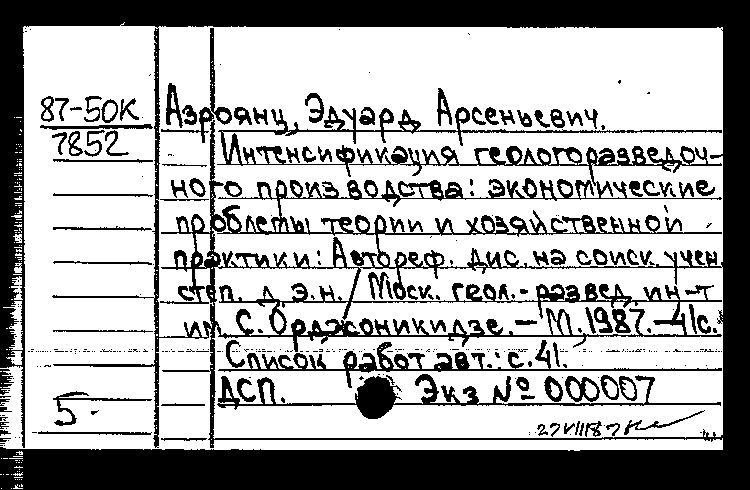 87-50К
7852
Азроянц, Эдуард Арсеньевич.
Интенсификация геологоразведоч-
ного производства: экономические
проблемы теории и хозяйственной
практики: Автореф. дис. на соиск. учен.
степ. д.э.н. / Моск. геол.-развед. ин-т
им. С. Орджоникидзе. – М., 1987. – 41с.
Список работ авт.: с. 41.
ДСП. Экз № 000007
5-
27 VIII 87